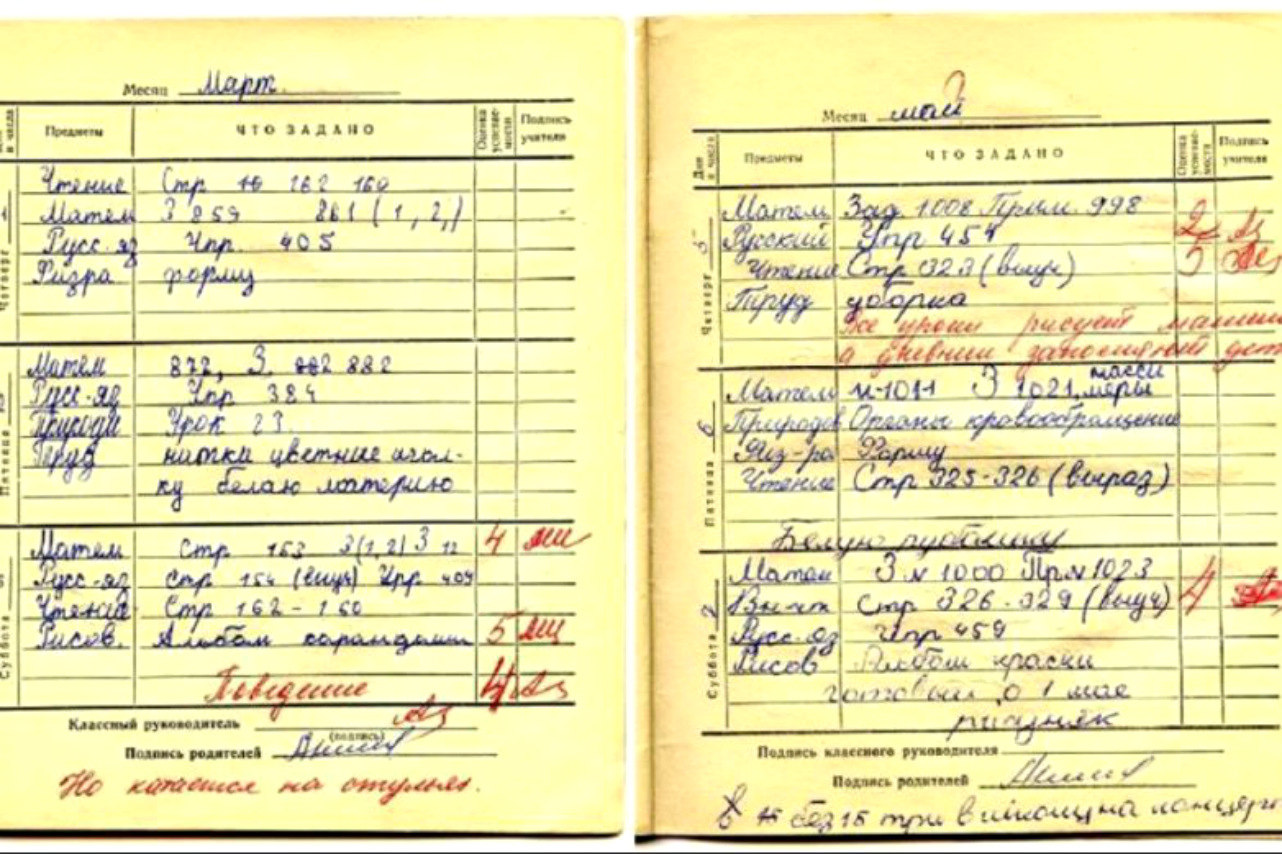 Месяц Март
Предметы ЧТО ЗАДАНО Оценка успеваемости Подпись учителя
Четверг
Чтение Стр 162 160
Матем З 859 861 (1, 2,)
Русс-яз Упр. 405
Физра форму
Пятница
Матем 872, З. 882
Русс-яз Упр 384
Урок 23.
Труд нитки цветные игол-
ку белаю материю
Суббота
Матем Стр 153 3(1,2) З 12 4
Русс-яз Стр 154 (выуч) Упр 409
Чтение Стр 162 - 160
Рисов. Альбом карандаши 5
Поведение 4
Классный руководитель
(подпись)
Подпись родителей
Но катается на стульях.
Месяц май ?
Дни и числа Предметы ЧТО ЗАДАНО Оценка успеваемости Подпись учителя
Четверг 5
Матем Зад. 1008 Прим. 998
Русский Упр 454 2
Чтение Стр 323 (выуч) 5
Труд уборка
Все уроки рисует машин
а дневник заполняют дет
Пятница 6
Матем N-1011 З 1021, массы меры
Природов Органы кровообращение
Физ-ра Форму
Чтение Стр 325-326 (выраз)
Белую рубашку
Суббота
Матем З N 1000 Пр.N 1023
Вн-чт Стр 326-329 (выуч) 4
Русс-яз Упр 459
Рисов Альбом краски
готовый о 1 мае
Подпись классного руководителя
Подпись родителей
без 15 три в школу на концерт